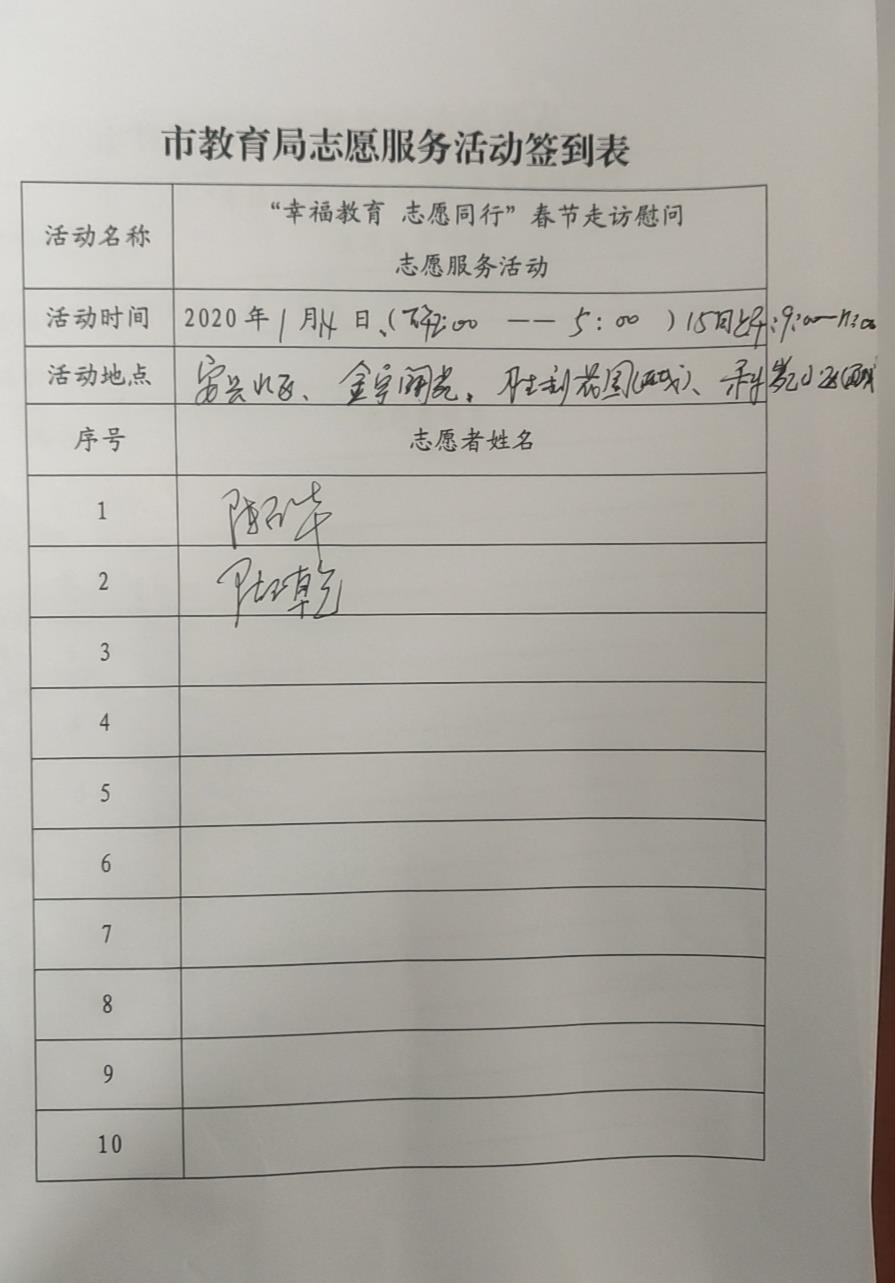 市教育局志愿服务活动签到表
活动名称
“幸福教育 志愿同行”春节走访慰问
志愿服务活动
活动时间 2020年1月14日、(下午2:00 —— 5:00 )15日上午:9:00—11:00
活动地点 安兴小区、金宇阳光、胜利花园(西城)、
序号 志愿者姓名
1
2
3
4
5
6
7
8
9
10